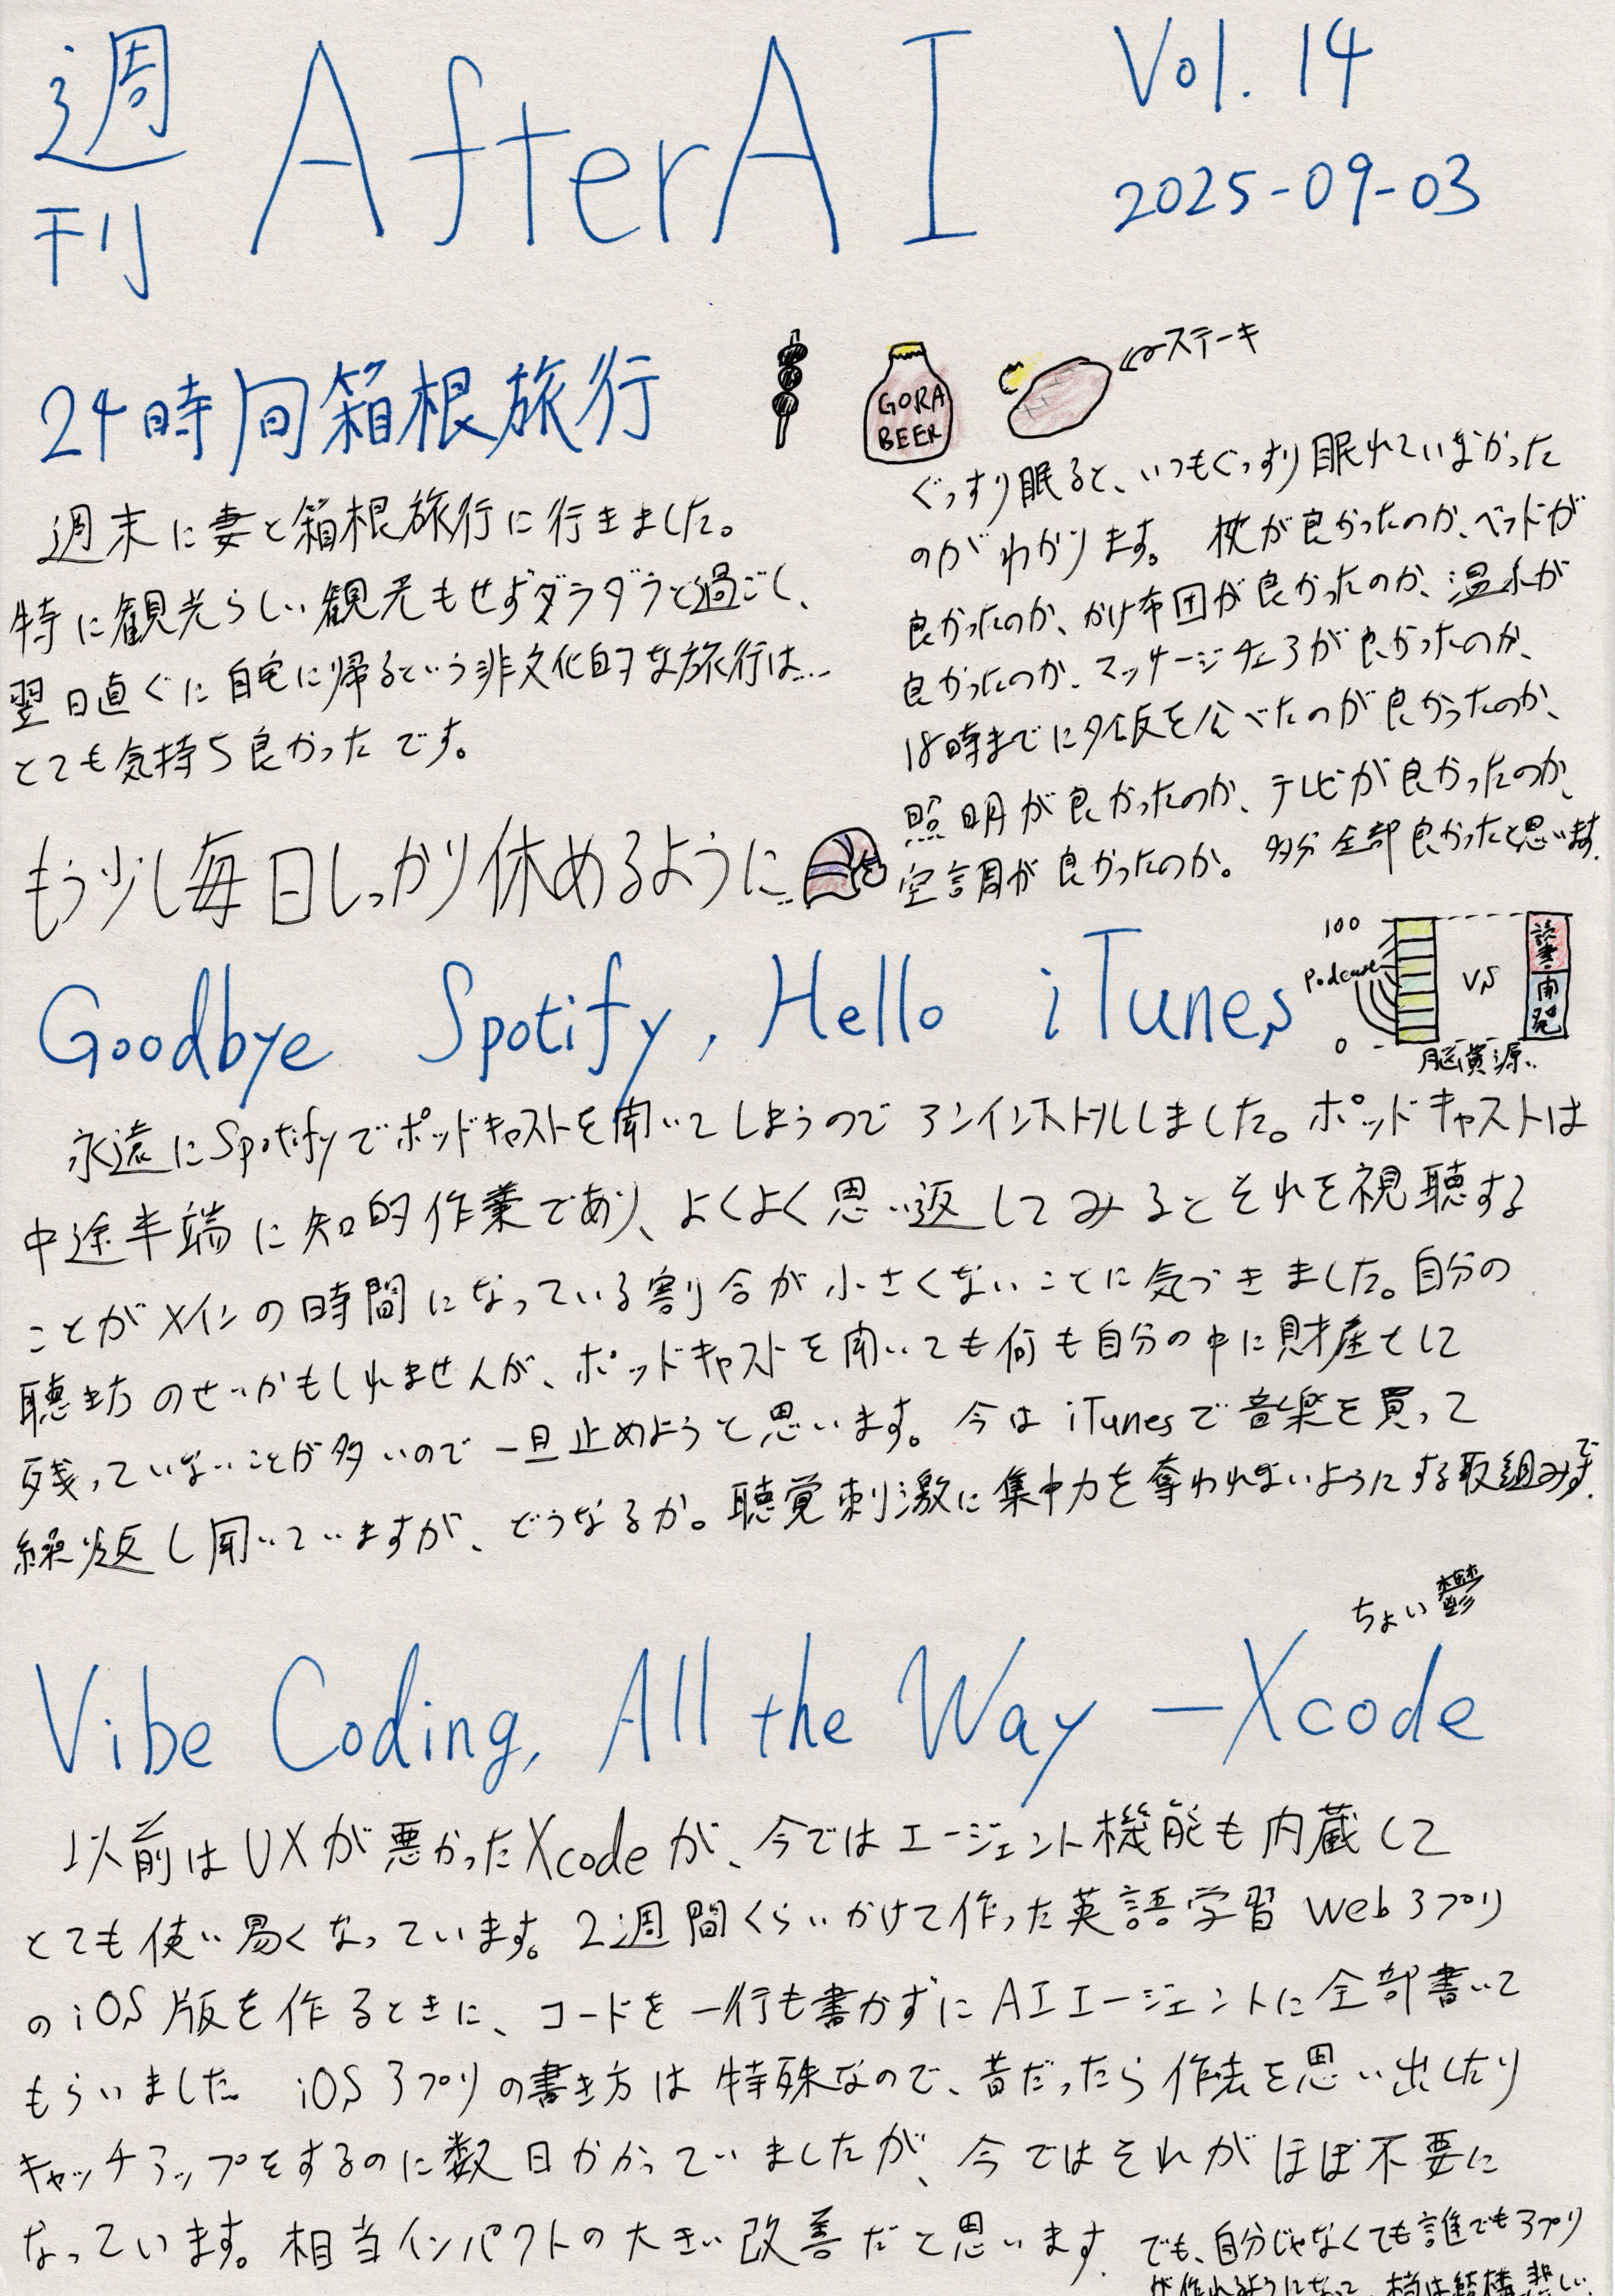 週刊 AfterAI Vol. 14
2025-09-03
24時間箱根旅行
GORA
BEER
ステーキ
週末に妻と箱根旅行に行きました。
特に観光らしい観光もせずダラダラと過ごし、
翌日直ぐに自宅に帰るという非文化的な旅行は…
とても気持ち良かったです。
もう少し毎日しっかり休めるように…
ぐっすり眠ると、いつもぐっすり眠れていなかった
のがわかります。 枕が良かったのか、ベッドが
良かったのか、かけ布団が良かったのか、温水が
良かったのか、マッサージチェアが良かったのか、
18時までに夕飯を食べたのが良かったのか、
照明が良かったのか、テレビが良かったのか、
空調が良かったのか。 多分全部良かったと思います.
Goodbye Spotify, Hello iTunes
100
Podcast
0
VS
読書
開発
脳資源..
永遠にSpotifyでポッドキャストを聞いてしまうのでアンインストールしました。ポッドキャストは
中途半端に知的作業であり、よくよく思い返してみるとそれを視聴する
ことがメインの時間になっている割合が小さくないことに気づきました。自分の
聴き方のせいかもしれませんが、ポッドキャストを聞いても何も自分の中に財産として
残っていないことが多いので一旦止めようと思います。 今はiTunesで音楽を買って
繰り返し聞いていますが、どうなるか。聴覚刺激に集中力を奪われないようにする取組みです.
ちょい鬱
Vibe Coding, All the Way – Xcode
以前はUXが悪かったXcodeが、今ではエージェント機能も内蔵して
とても使い易くなっています。2週間くらいかけて作った英語学習Webアプリ
のiOS版を作るときに、コードを一行も書かずにAIエージェントに全部書いて
もらいました. iOSアプリの書き方は特殊なので、昔だったら作法を思い出したり
キャッチアップをするのに数日かかっていましたが、今ではそれがほぼ不要に
なっています。相当インパクトの大きい改善だと思います.
でも、自分じゃなくても誰でもアプリ
が作れるようになって、 結構悲しい.